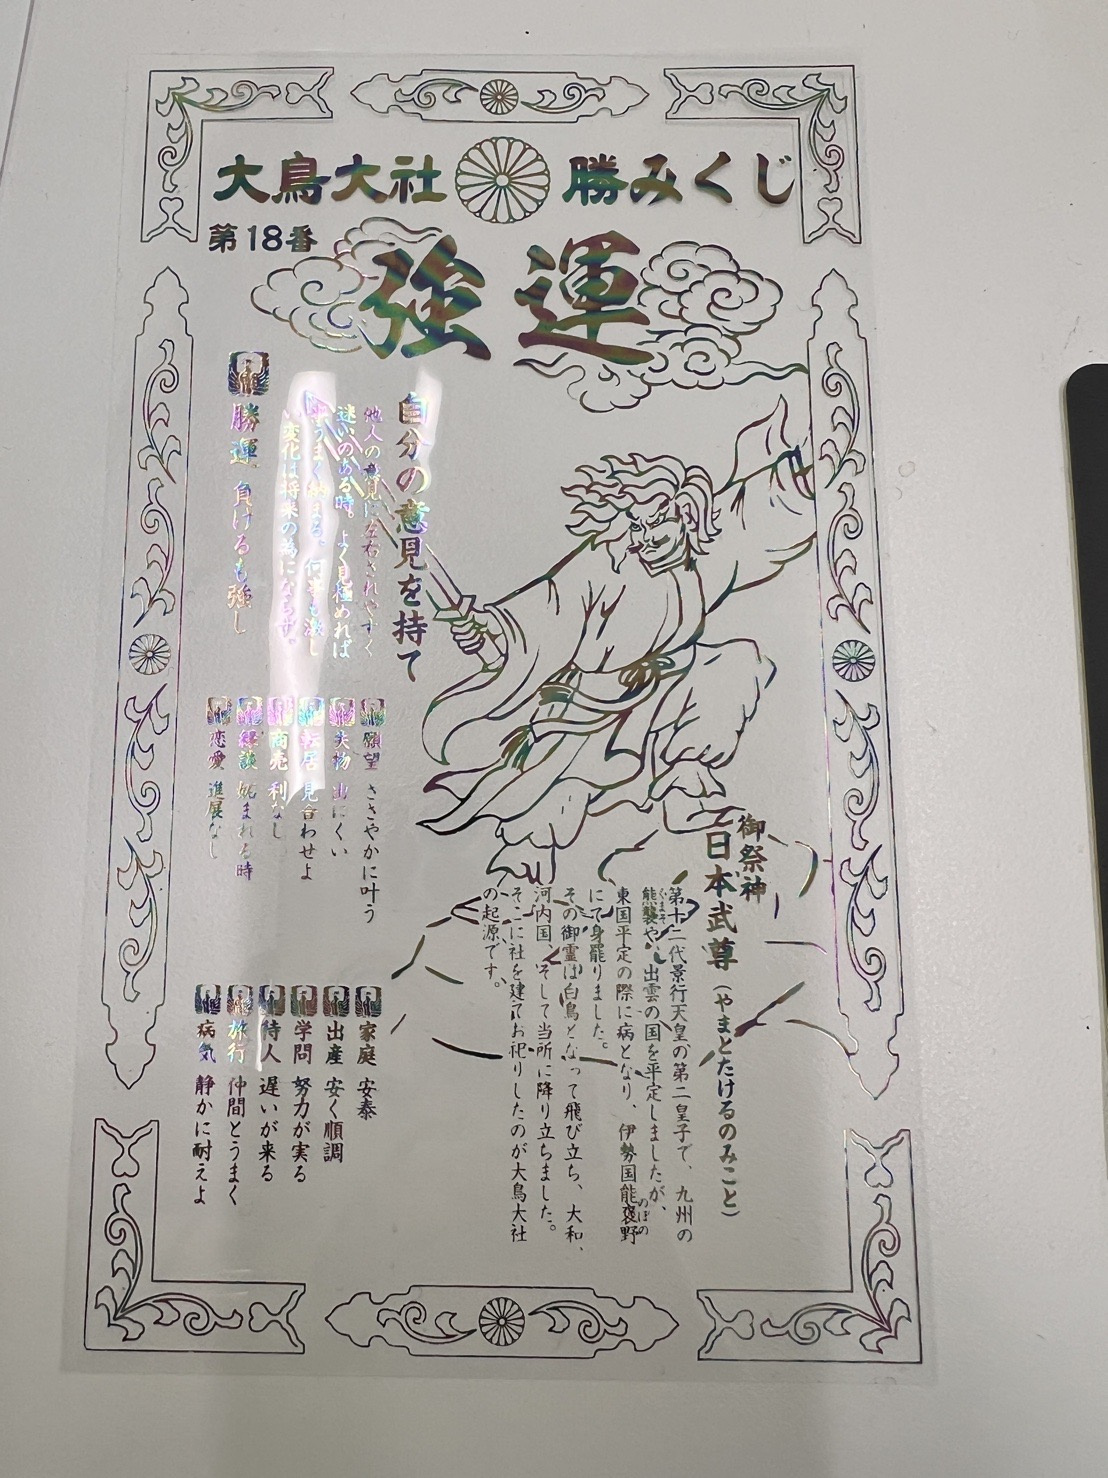 大鳥大社 勝みくじ
第18番
強運
御祭神
日本武尊(やまとたけるのみこと)
第十二代景行天皇の第二皇子で、九州の
熊襲や、出雲の国を平定しましたが、
くまそ
東国平定の際に病となり、伊勢国能褒野
のぼの
にて身罷りました。
その御霊は白鳥となって飛び立ち、大和、
河内国、そして当所に降り立ちました。
そこに社を建てお祀りしたのが大鳥大社
の起源です。
自分の意見を持て
他人の意見に左右されやすく
迷いのある時。よく見極めれば
うまく納まる。何事も激し
変化は将来の為にならず。
勝運 負けるも強し
願望 ささやかに叶う
失物 出にくい
転居 見合わせよ
商売 利なし
縁談 妬まれる時
恋愛 進展なし
家庭 安泰
出産 安く順調
学問 努力が実る
待人 遅いが来る
旅行 仲間とうまく
病気 静かに耐えよ